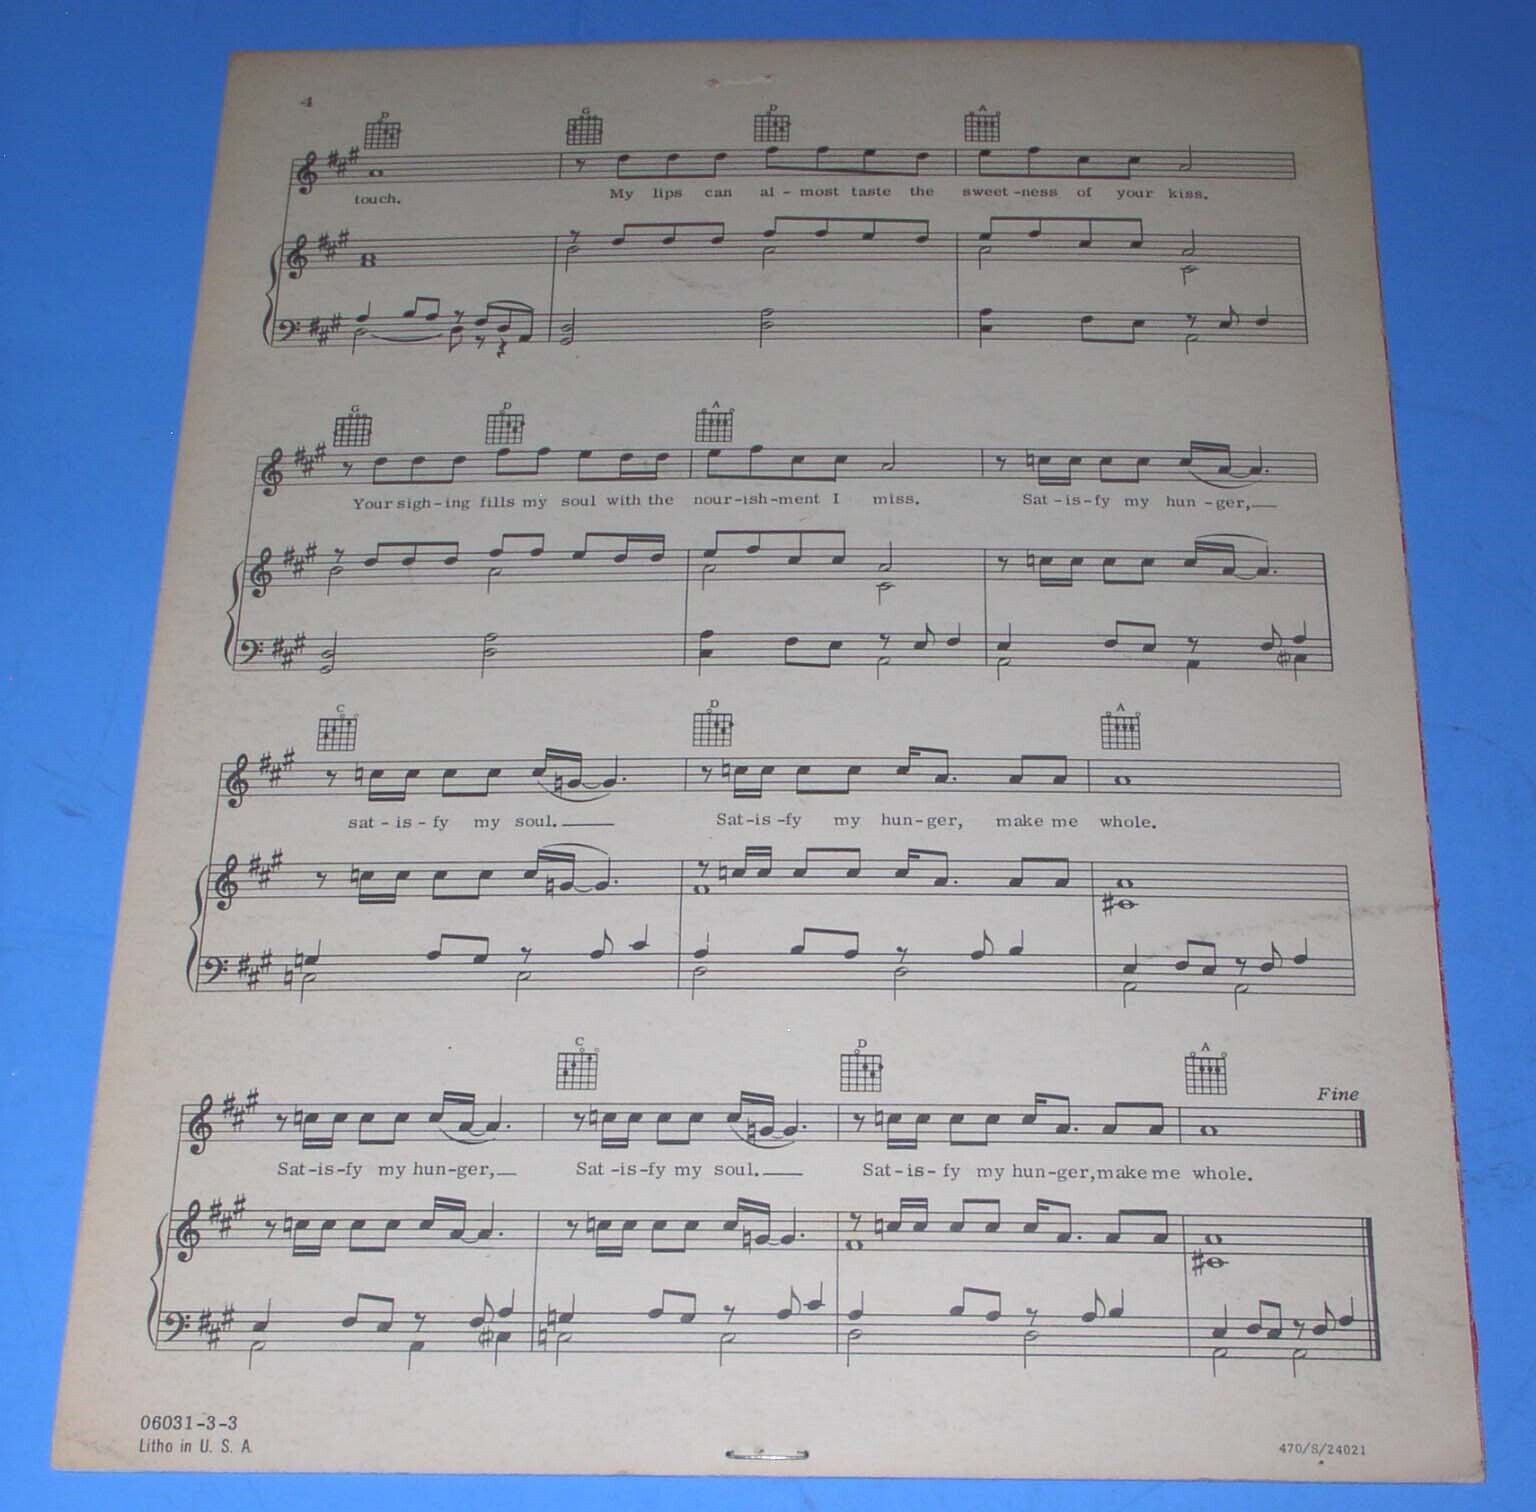 4
D G D A
touch. My lips can al - most taste the sweet - ness of your kiss.
G D A
Your sigh - ing fills my soul with the nour - ish - ment I miss. Sat - is - fy my hun - ger,
C D A
sat - is - fy my soul. Sat - is - fy my hun - ger, make me whole.
C D A Fine
Sat - is - fy my hun - ger, Sat - is - fy my soul. Sat - is - fy my hun - ger, make me whole.
06031-3-3
Litho in U. S. A. 470/S/24021